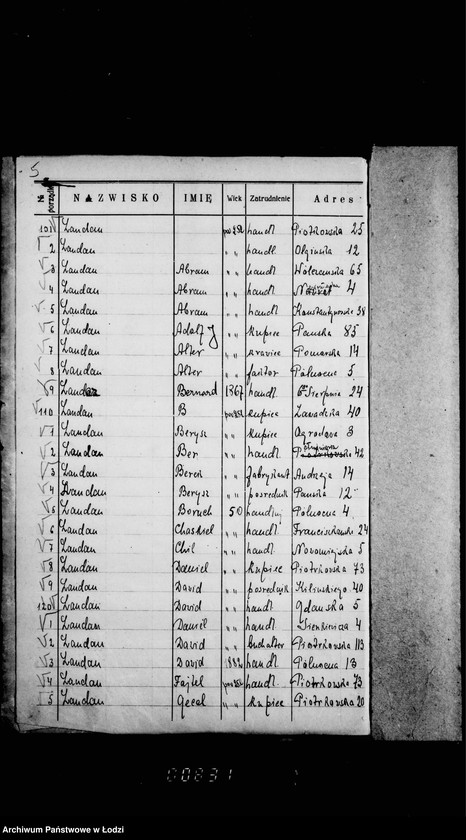 5
№ porządk. NAZWISKO IMIĘ Wiek Zatrudnienie Adres
101 Landau handl Piotrkowska 25
2 Landau " " handl. Olgińska 12
3 Landau Abram " " handl Wólczańska 65
4 Landau Abram " " handl 4
5 Landau Abram " " handl Konstantynowska 38
6 Landau Adolf J " " kupiec Pańska 85
7 Landau Alter " " krawiec Pomorska 14
8 Landau Alter " " faktor Północna 5
9 Landau Bernard 1867 handl. 6 Sierpnia 24
110 Landau B kupiec Zawadzka 40
1 Landau Berysz " " kupiec Ogrodowa 3
2 Landau Ber " " handl 42
3 Landau Berek " " fabrykant Andrzeja 14
4 Landau Berysz " " pośrednik Pańska 12
5 Landau Boruch 50 handluj Północna 4
6 Landau Chaskiel " " handl Franciszkańska 24
7 Landau Chil " " handl. Nowomiejska 5
8 Landau Daniel " " kupiec Piotrkowska 73
9 Landau David " " pośrednik Kilińskiego 40
120 Landau David " " handl Gdańska 5
1 Landau Daniel " " handl Sienkiewicza 4
2 Landau David " " buchalter Piotrkowska 113
3 Landau David 1882 handl Północna 13
4 Landau Fajtel handl. Piotrkowska 73
5 Landau Gecel " " kupiec Piotrkowska 20
00831
Archiwum Państwowe w Łodzi